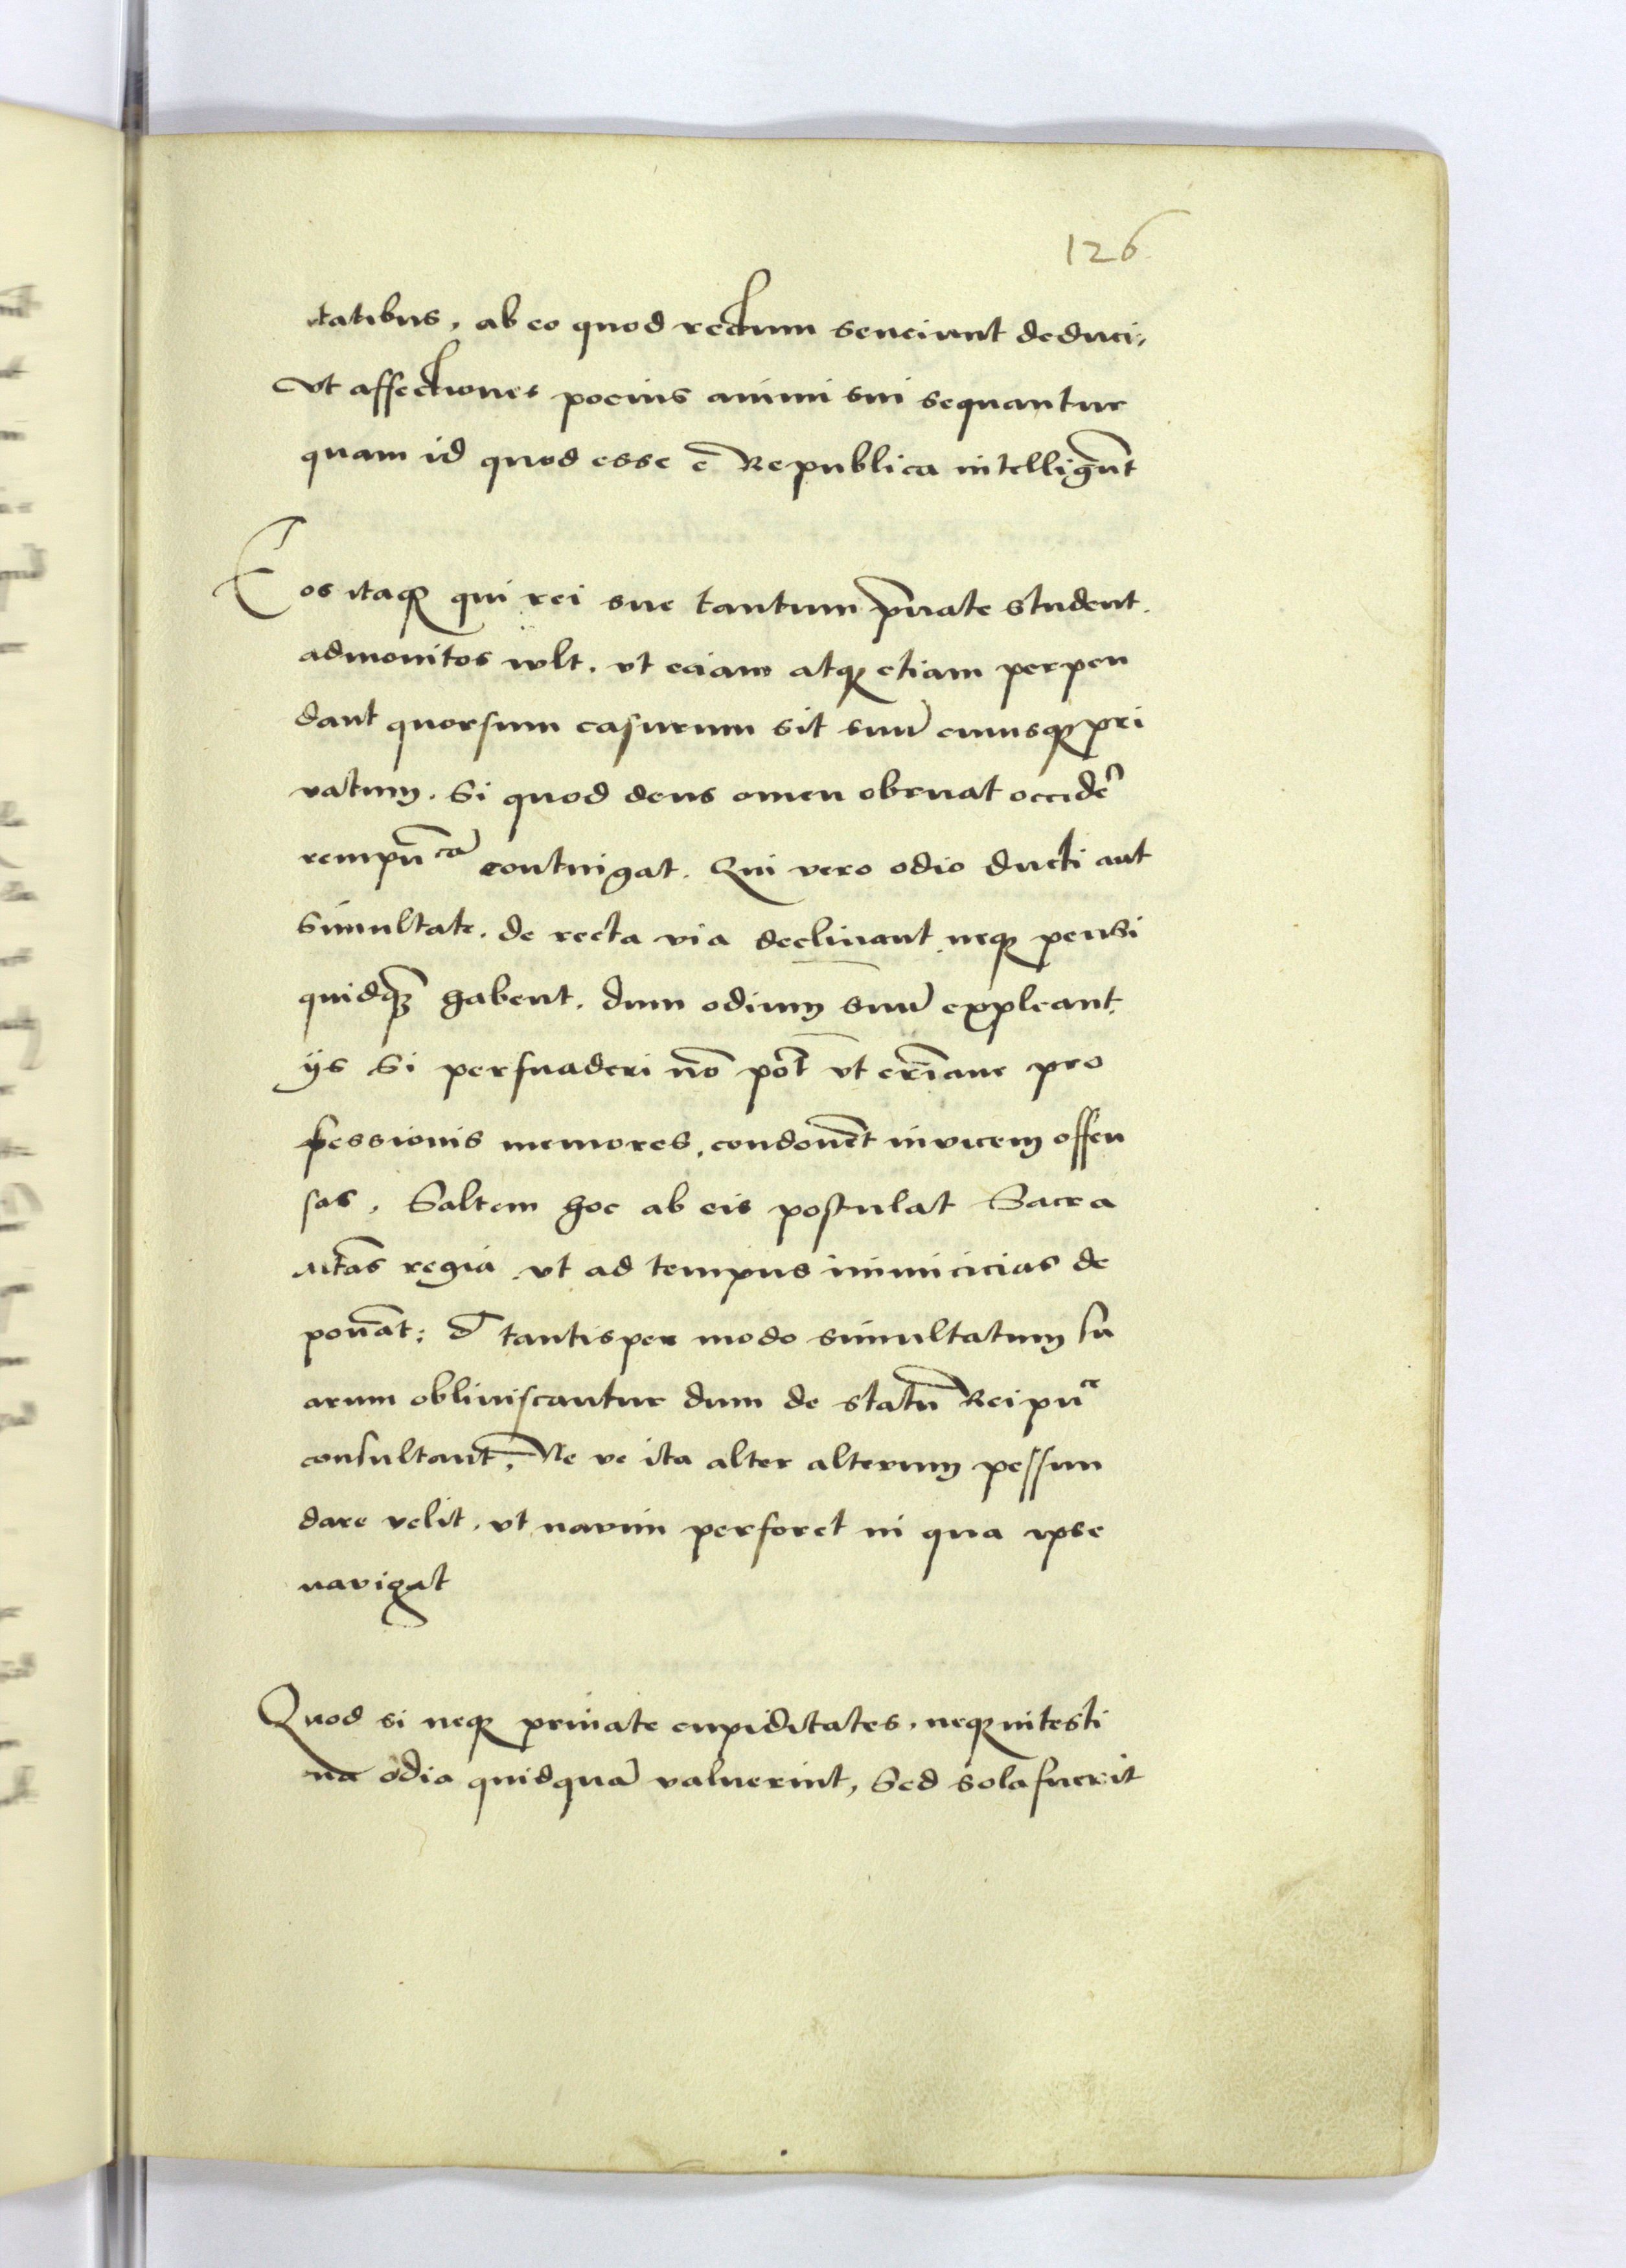 126
tatibus, ab eo quod rectum senciunt deduci,
Vt affectiones pocius animi sui sequantur
quam id quod esse ē Republica intelligūt
Eos itaqꝫ qui rei sue tantum p̄uate student.
admonitos wlt, vt eciam atqꝫ etiam perpen
dant quorsum casurum sit suū cuiusqꝫ pri
vatum. Si quod deus omen obruat occidē
rempu᷒cā contingat. Qui vero odio ducti aut
simultate. de recta via declinant neqꝫ pensi
quidqꝫ habent. dum odium suū expleant.
ijs si persuaderi nō pōt vt cr̄iane pro
fessionis memores, condonēt invicem offen
sas, Saltem hoc ab eis postulat Sacra
Mtās regia vt ad tempus inimicicias de
ponāt: & tantisper modo simultatum su
arum obliuiscantur dum de statū Reipu᷒ce
consultant, Ne ve ita alter alterum pessun
dare velit. vt navim perforet in qua ipse
navigat
Quod si neqꝫ priuate cupiditates, neqꝫ intesti
na odia quidquā valuerint, Sed sola fuerit